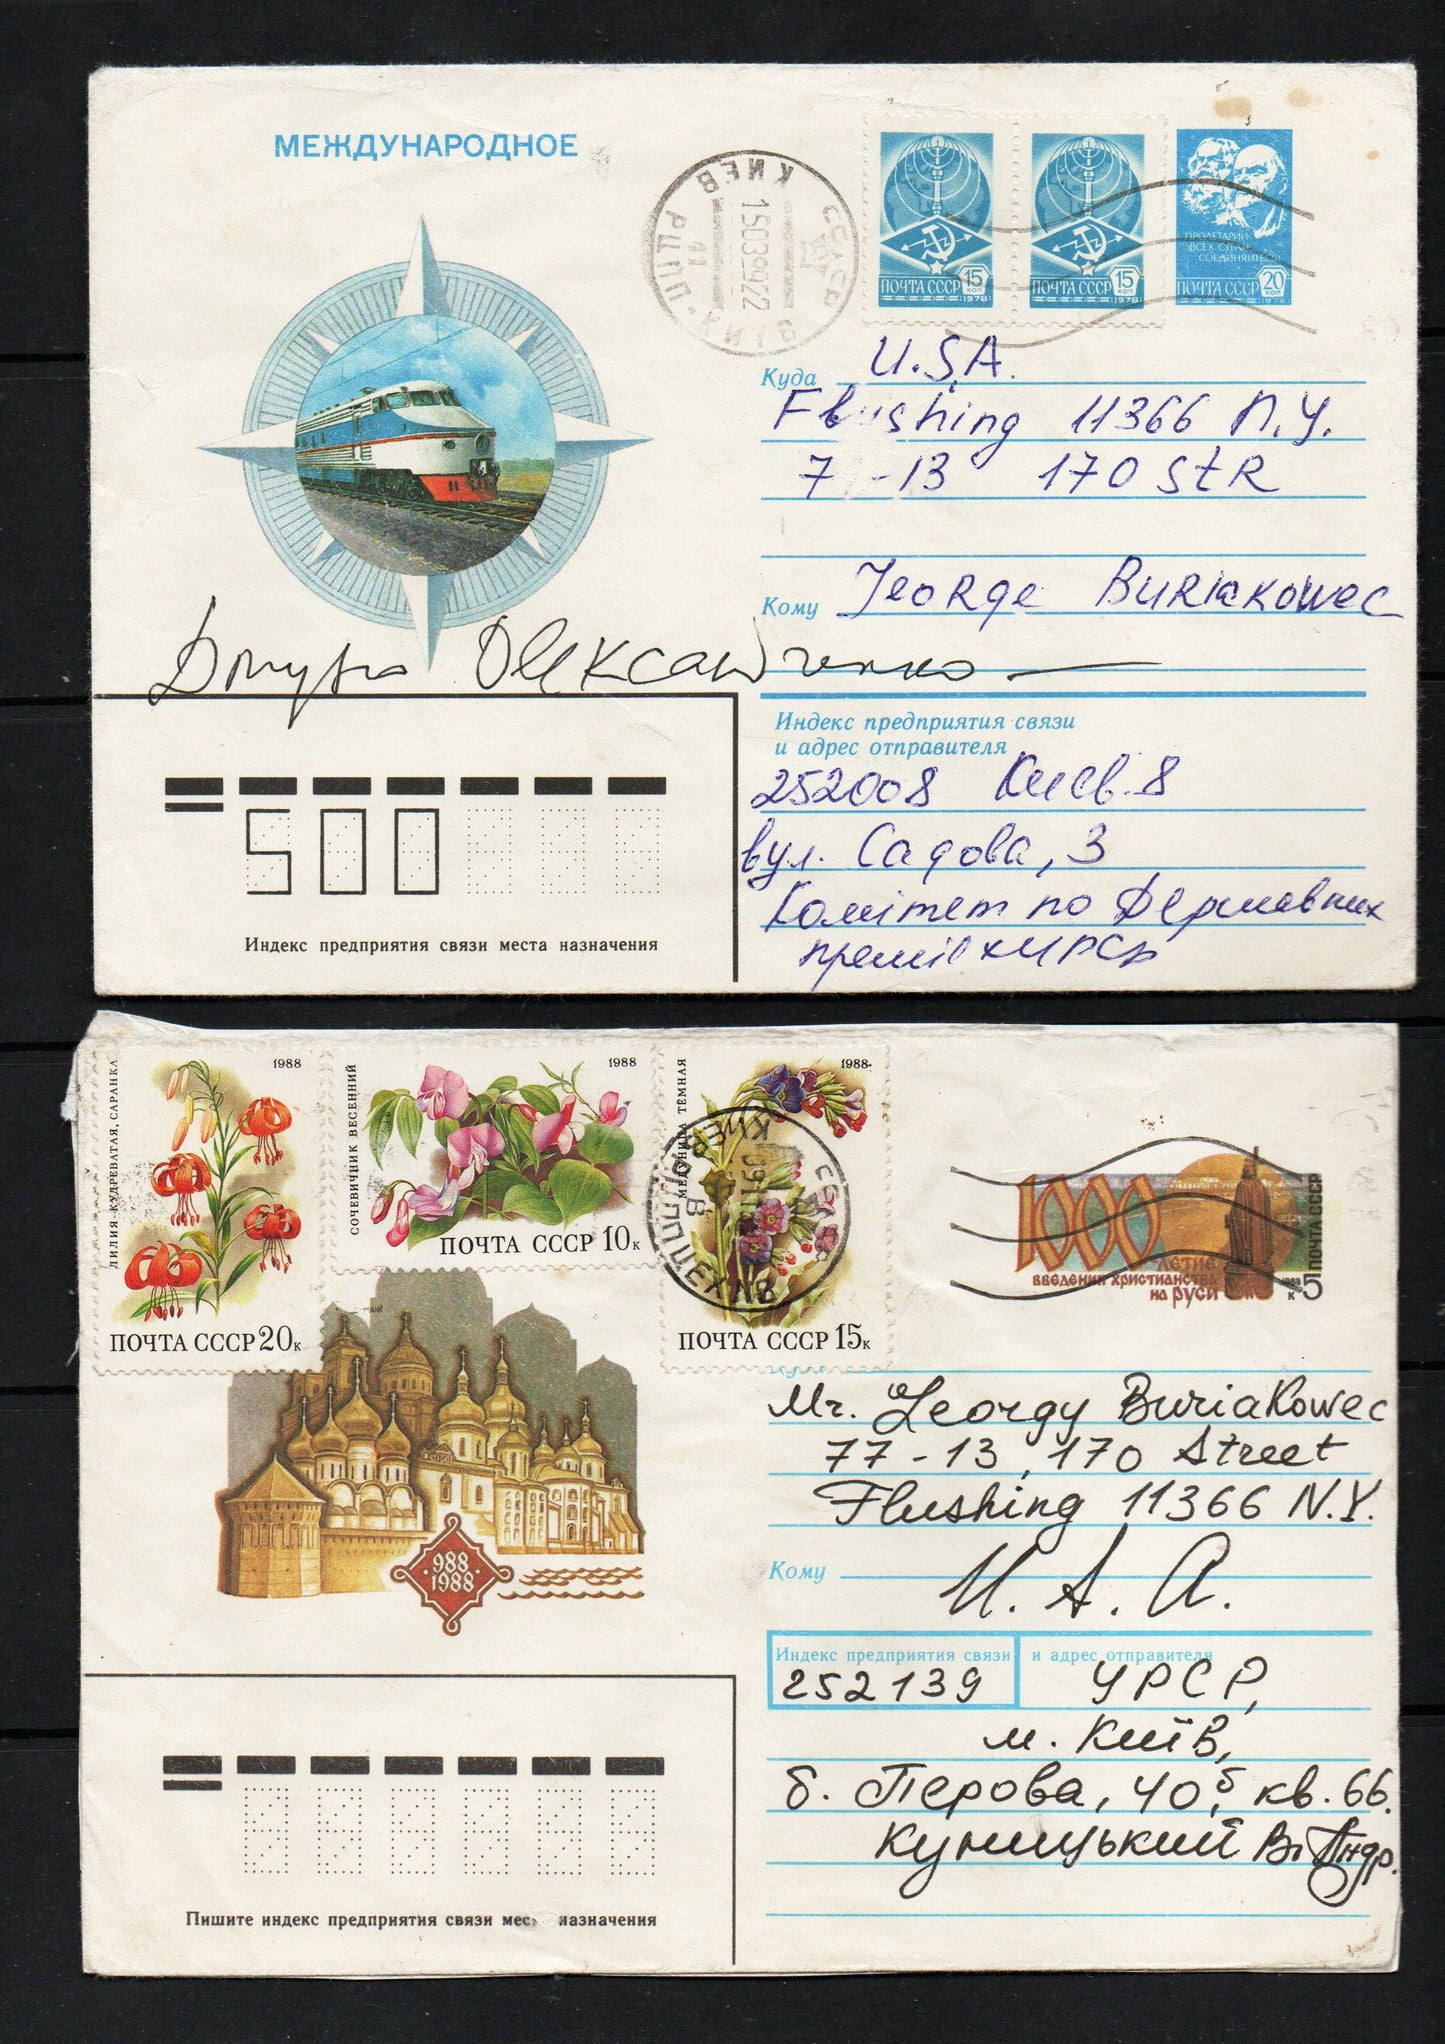 МЕЖДУНАРОДНОЕ
СССР
КИЕВ
РЦПП-
11
ПОЧТА СССР 15 коп
1978
ПОЧТА СССР 15 коп
1978
ПРОЛЕТАРИИ
ВСЕХ СТРАН
СОЕДИНЯЙТЕСЬ
ПОЧТА СССР 20 коп
1978
Куда U.S.A.
Flushing 11366 N.Y.
-13 170 StR
Кому George Buriakowec
Дмутро Олександренко
Индекс предприятия связи
и адрес отправителя
252008 Киев 8
вул. Садова, 3
Комітет по Державних
преміях УРСР
500
Индекс предприятия связи места назначения
ЛИЛИЯ КУДРЕВАТАЯ, САРАНКА
1988
ПОЧТА СССР 20к
СОЧЕВИЧНИК ВЕСЕННИЙ
1988
ПОЧТА СССР 10к
МЕДУНИЦА ТЕМНАЯ
1988
ПОЧТА СССР 15к
СССР
КИЕВ
1000
ЛЕТИЕ
ВВЕДЕНИЯ ХРИСТИАНСТВА
НА РУСИ
1988
ПОЧТА СССР
к 5
988
1988
Mr. Georgy Buriakowec
77-13, 170 Street
Flushing 11366 N.Y.
Кому U.S.A.
Индекс предприятия связи и адрес отправителя
252139 УРСР,
м. Київ,
б. Перова, 40б, кв. 66.
Куницький В. Андр.
Пишите индекс предприятия связи места назначения